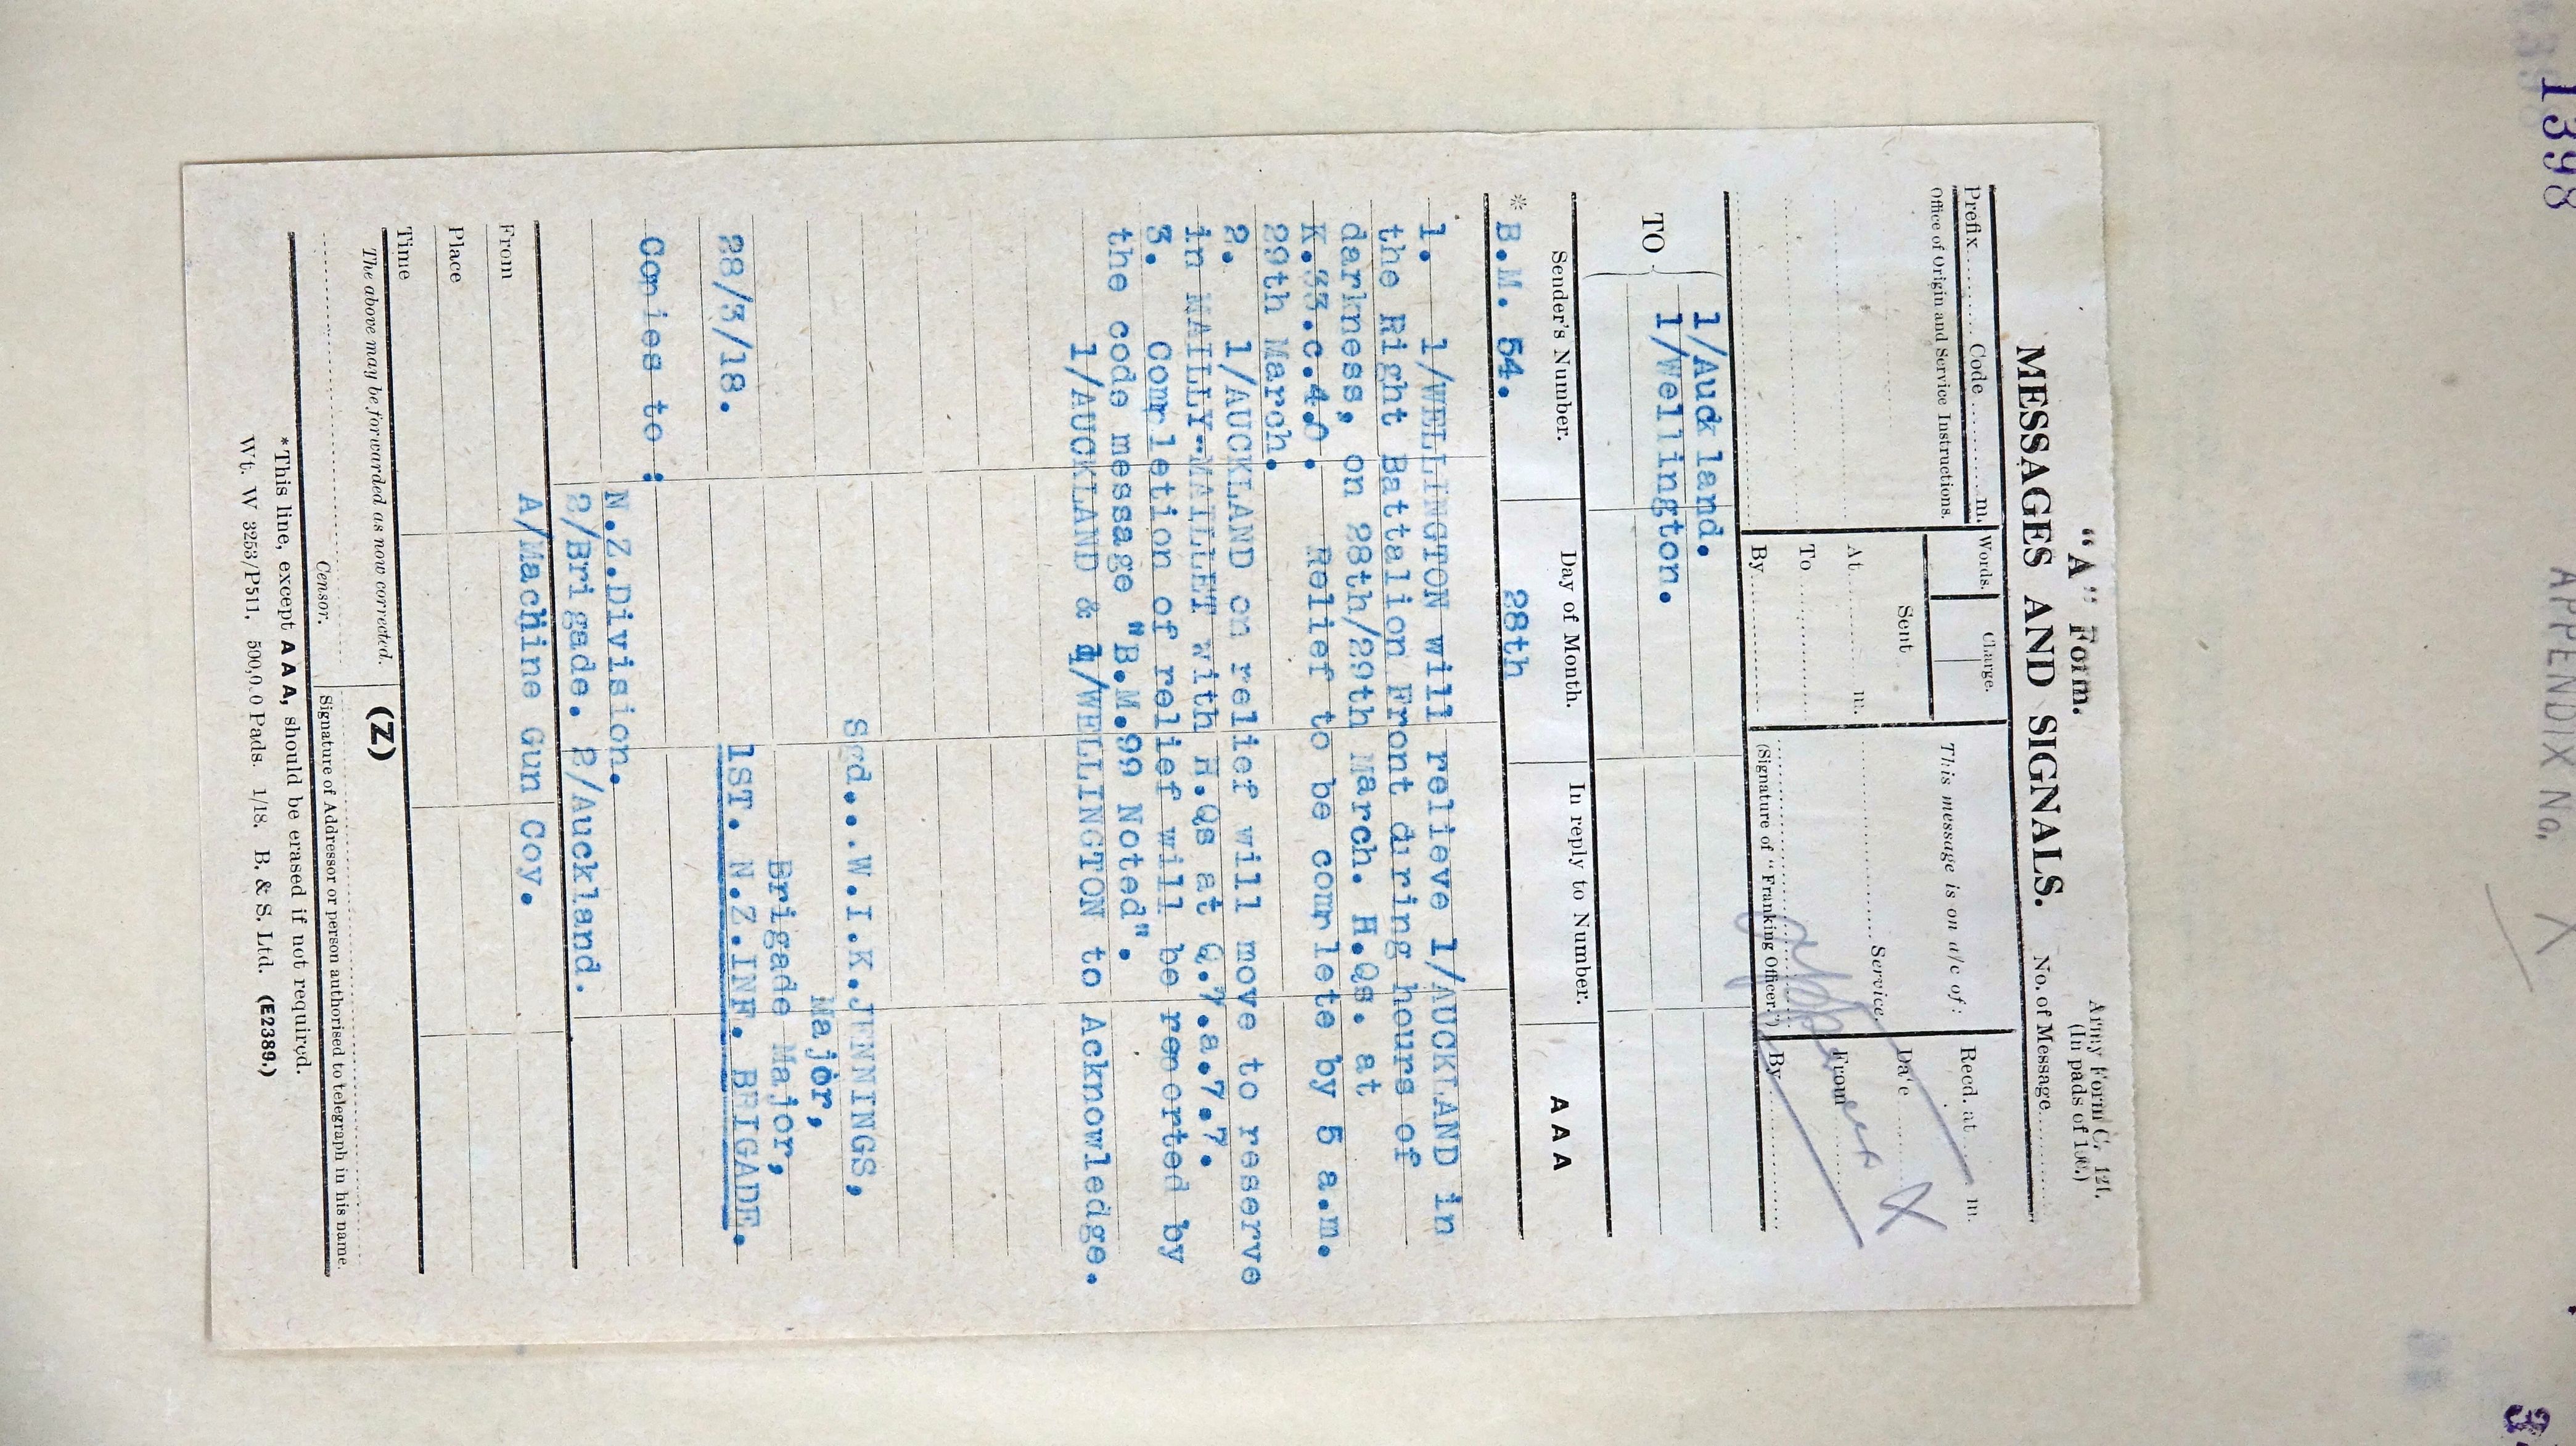 1398
APPENDIX No. X
"A" Form.
Army Form C. 121.
(In pads of 100.)
MESSAGES AND SIGNALS.
No. of Message
Prefix Code m.
Words. Charge.
This message is on a/c of:
Recd. at m.
Office of Origin and Service Instructions.
Sent
Service.
Date
At m.
From
To
By
(Signature of "Franking Officer.")
By
Appendix X
TO
1/Auckland.
1/Wellington.
Sender's Number. Day of Month. In reply to Number. AAA
* B.M. 54. 28th
1. 1/WELLINGTON will relieve 1/AUCKLAND in
the Right Battalion Front during hours of
darkness, on 28th/29th March. H.Qs. at
K.33.c.4.0. Relief to be complete by 5 a.m.
29th March.
2. 1/AUCKLAND on relief will move to reserve
in MAILLY-MAILLET with H.Qs at Q.7.a.7.7.
3. Completion of relief will be reported by
the code message "B.M.99 Noted".
1/AUCKLAND & 1/WELLINGTON to Acknowledge.
Sgd...W.I.K.JENNINGS,
Major,
Brigade Major,
28/3/18. 1ST. N.Z.INF. BRIGADE.
Copies to :
N.Z.Division.
2/Brigade. 2/Auckland.
A/Machine Gun Coy.
From
Place
Time
The above may be forwarded as now corrected. (Z)
Censor. Signature of Addressor or person authorised to telegraph in his name.
*This line, except AAA, should be erased if not required.
Wt. W 3253/P511. 500,000 Pads. 1/18. B. & S. Ltd. (E2389.)